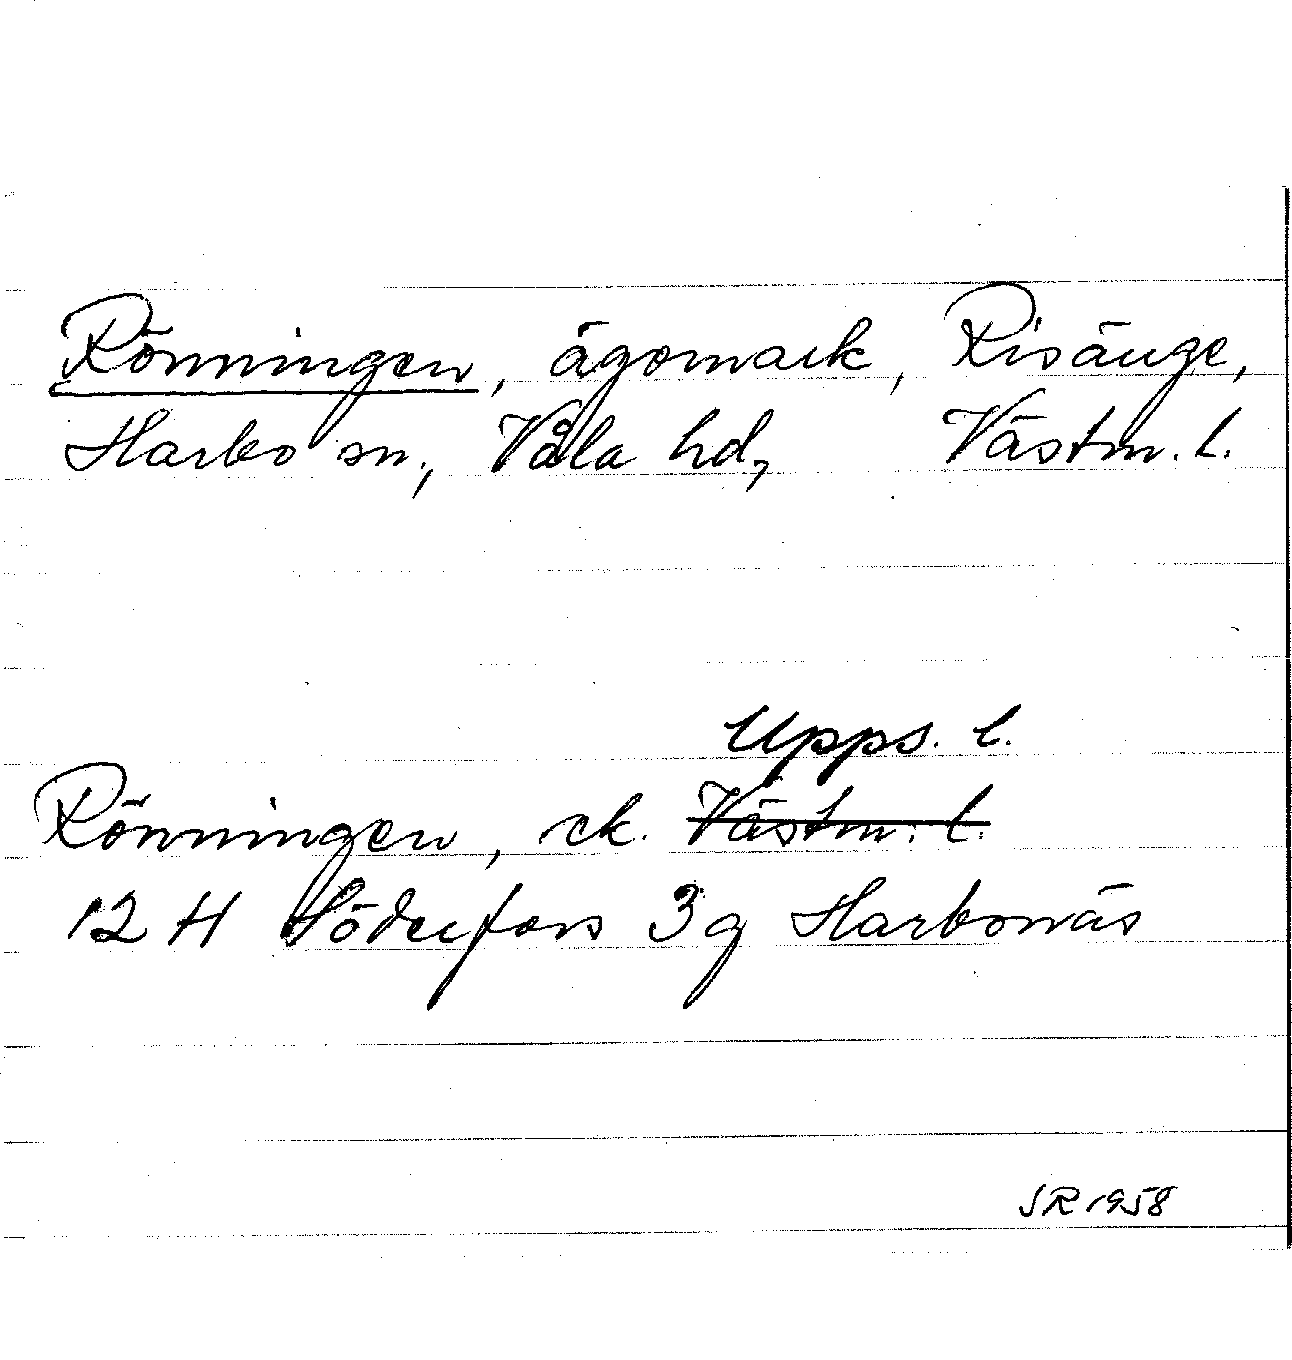 Rönningen, ägomark, Risänge,
Harbo sn, Våla hd, Västm. l.
Upps. l.
Rönningen, ek. Västm. l.
12 H Söderfors 3g Harbonäs
SR 1958